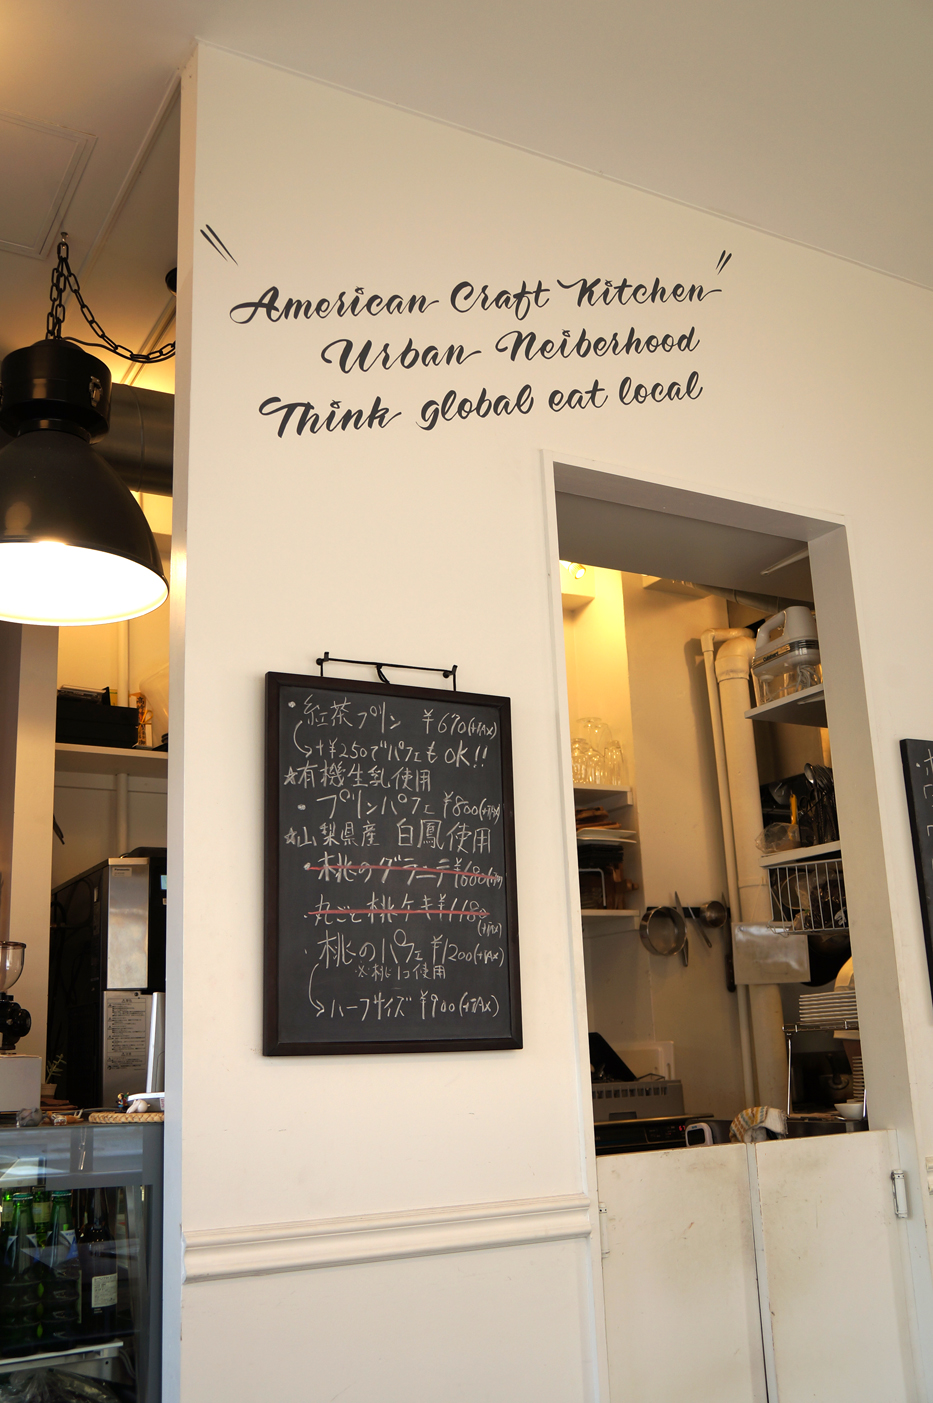 American Craft Kitchen
Urban Neiberhood
Think global eat local
・紅茶プリン ¥670(+TAX)
+¥250でパフェもOK!!
☆有機生乳使用
・プリンパフェ ¥800(+TAX)
☆山梨県産 白鳳使用
・桃のグラニテ ¥680(+TAX)
・丸ごと桃ケーキ ¥1180
(+TAX)
・桃のパフェ ¥1200(+TAX)
※桃1コ使用
ハーフサイズ ¥900(+TAX)